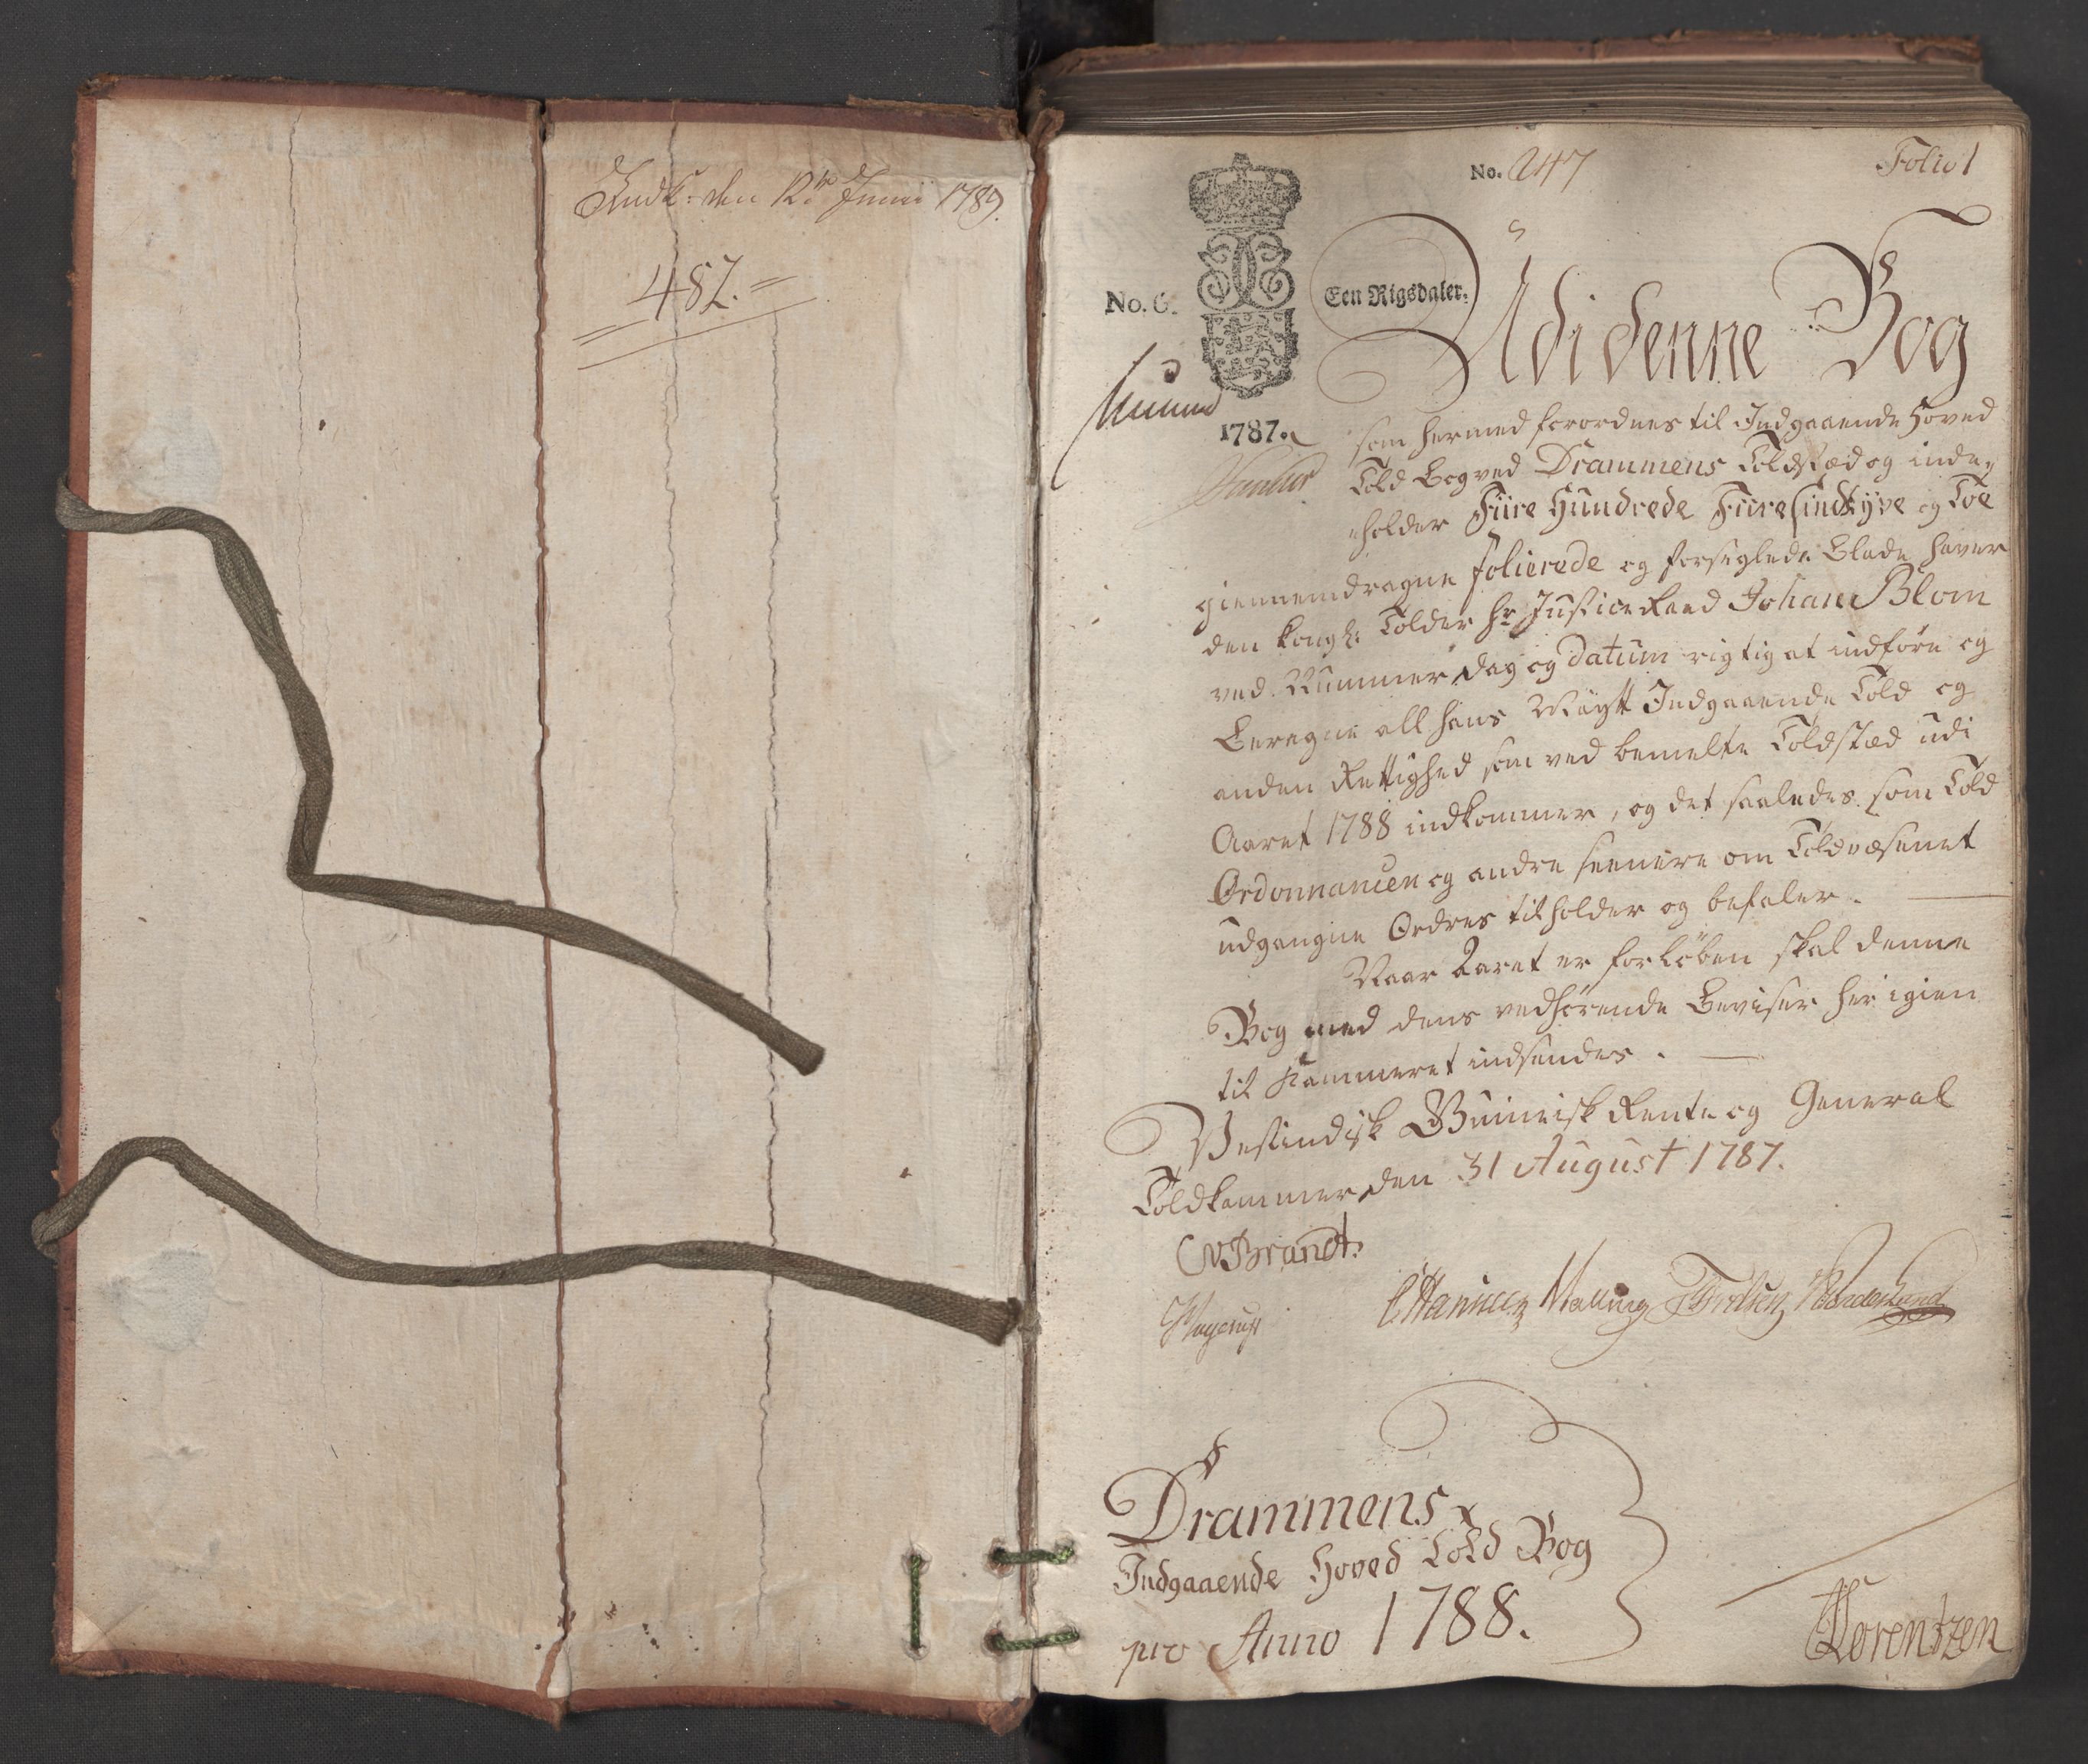 Indk: den 12te Junii 1789.
482.
No. 247
Folio 1
No. 6.
Een Rigsdaler.
1787.
Udi denne Bog
som hermed forordnes til Indgaaende Hoved
Told Bog ved Drammens Toldsted og inde-
holder Fiire Hundrede Fiiresindstyve og Toe
giennemdragne folierede og forseglede Blade, haver
den kongl: Tolder Hr Justice Raad Johan Blom
ved Nummer, Dag og Datum rigtig at indføre og
Beregne all Hans Maytt Indgaaende Told og
anden Rettighed som ved bemelte Toldsted udi
Aaret 1788 indkommer, og det saaledes som Told
Ordonnancen og andre seenere om Toldvæsenet
udgangne Ordres tilholder og befaler.
Naar Aaret er forløben skal denne
Bog med dens vedhørende Beviser her igien
til Kammeret indsendes.
Vestindisk Guineisk Rente og General
Toldkammer den 31 August 1787.
CVBrandt.
Hansen Malling
Drammens
Indgaaende Hoved Told Bog
pro Anno 1788.
Lorentzen